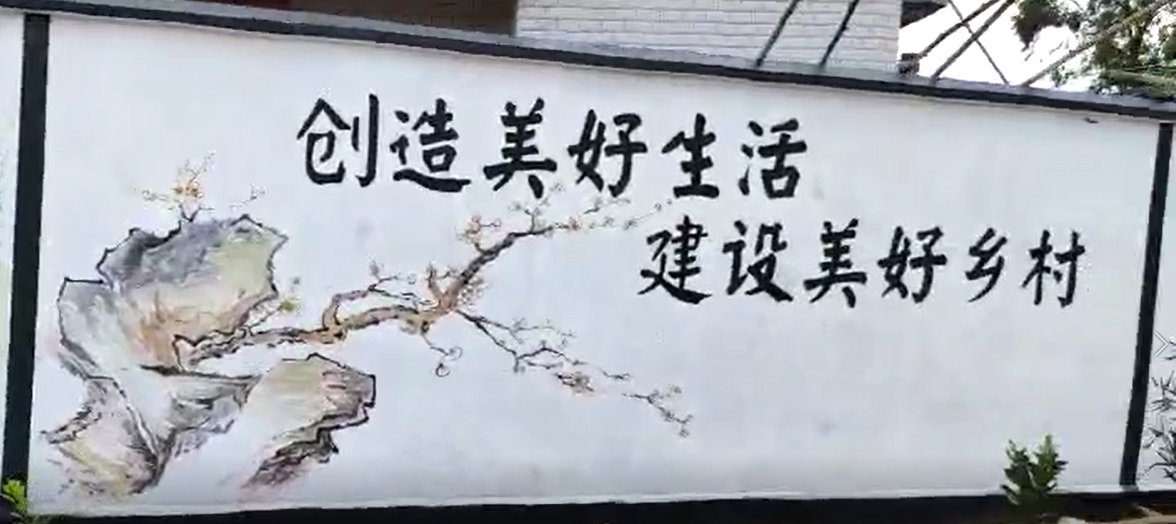 创造美好生活
建设美好乡村